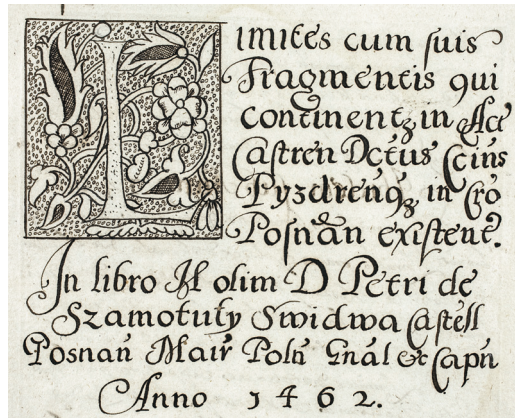 Limites cum suis
Fragmentis qui
continent in Act
Castren
Pyzdren in
Posnan existent.
In libro M olim D Petri de
Szamotuły Swidwa Castell
Posnan Maio Poln Gnal et Capn
Anno 1462.